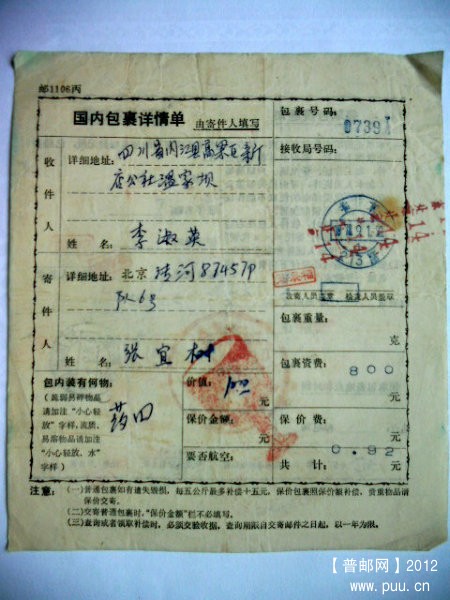 邮1106丙
国内包裹详情单 由寄件人填写
包裹号码:
0739
接收局号码:
收件人
详细地址: 四川省内江县高梁区新
店公社温家坝
姓名: 李淑英
寄件人
详细地址: 北京清河83457P
队6号
姓名: 张宜树
收寄人员
包裹重量:
克
包内装有何物:
(装易碎物品
请加注“小心轻
放”字样,流质、
易溶物品请加注
“小心轻放、水”
字样)
药四
价值:
元
包裹资费:
800
元
保价金额:
元
保价费:
元
票否航空:
共计:
0.92
元
注意: (一)普通包裹如有遗失毁损,每五公斤最多补偿十五元,保价包裹照保价额补偿,贵重物品请
保价交寄。
(二)交寄普通包裹时,“保价金额”栏不必填写。
(三)查询或者领取补偿时,必须交验收据,查询期限自交寄邮件之日起,以一年为限。
【普邮网】2012
www.puu.cn